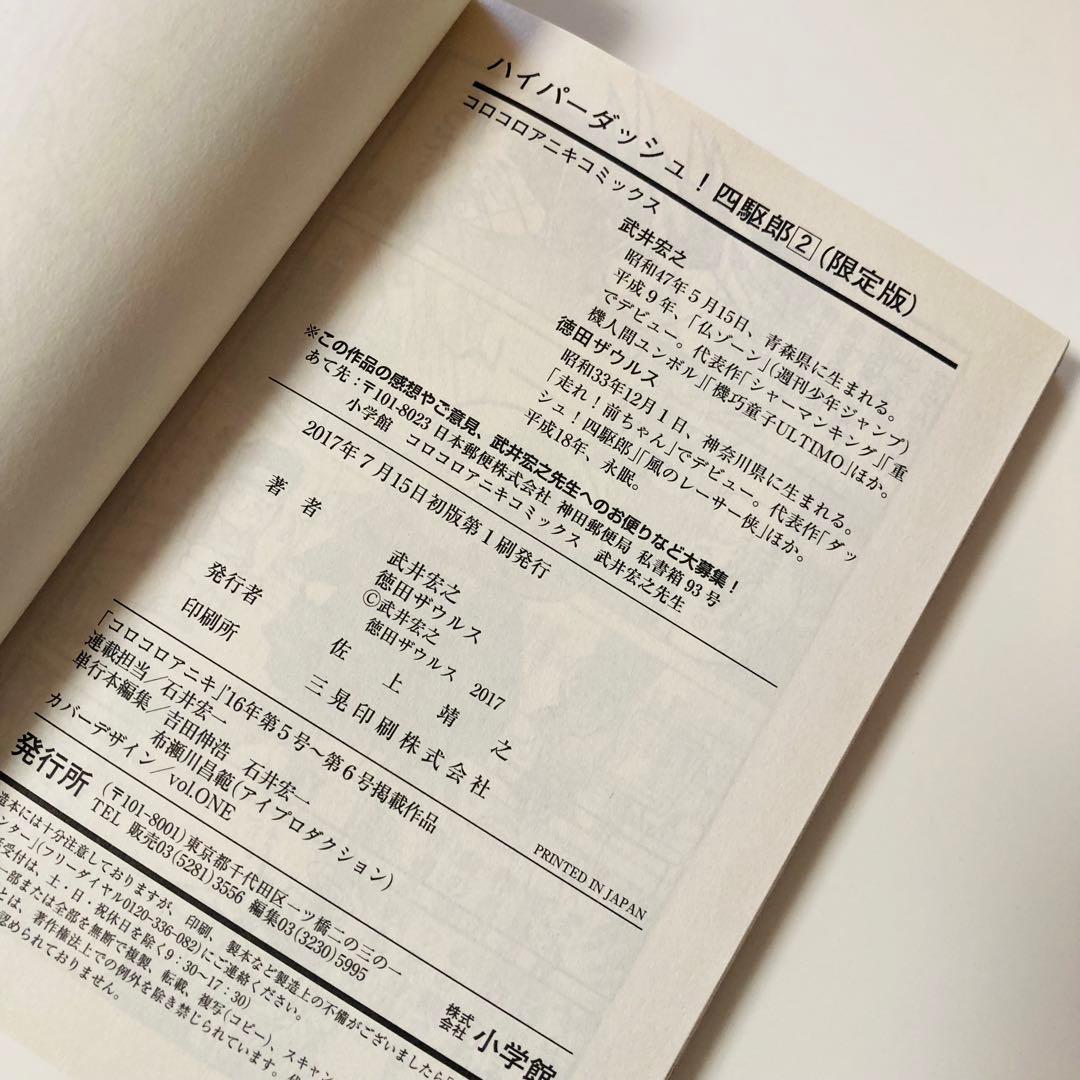 ハイパーダッシュ！四駆郎2(限定版)
コロコロアニキコミックス
武井宏之
昭和47年5月15日、青森県に生まれる。
平成9年、「仏ゾーン」(週刊少年ジャンプ)
でデビュー。代表作「シャーマンキング」「重
機人間ユンボル」「機巧童子ULTIMO」ほか。
徳田ザウルス
昭和33年12月1日、神奈川県に生まれる。
「走れ！前ちゃん」でデビュー。代表作「ダッ
シュ！四駆郎」「風のレーサー侠」ほか。
平成18年、永眠。
※この作品の感想やご意見、武井宏之先生へのお便りなど大募集！
あて先：〒101-8023 日本郵便株式会社 神田郵便局 私書箱93号
小学館 コロコロアニキコミックス 武井宏之先生
2017年7月15日初版第1刷発行
著者 武井宏之
徳田ザウルス
©武井宏之
徳田ザウルス 2017
発行者 佐上靖之
印刷所 三晃印刷株式会社
PRINTED IN JAPAN
「コロコロアニキ」'16年第5号〜第6号掲載作品
連載担当／石井宏一
単行本編集／吉田伸浩 石井宏一
布瀬川昌範(アイプロダクション)
カバーデザイン／vol.ONE
発行所 (〒101-8001)東京都千代田区一ツ橋二の三の一
TEL 販売03(5281)3556 編集03(3230)5995
株式会社 小学館
造本には十分注意しておりますが、印刷、製本など製造上の不備がございましたら
ンター」(フリーダイヤル0120-336-082)にご連絡ください。
受付は、土・日・祝休日を除く9：30〜17：30)
一部または全部を無断で複製、転載、複写(コピー)、スキャン
とは、著作権法上での例外を除き禁じられています。
認められておりません。